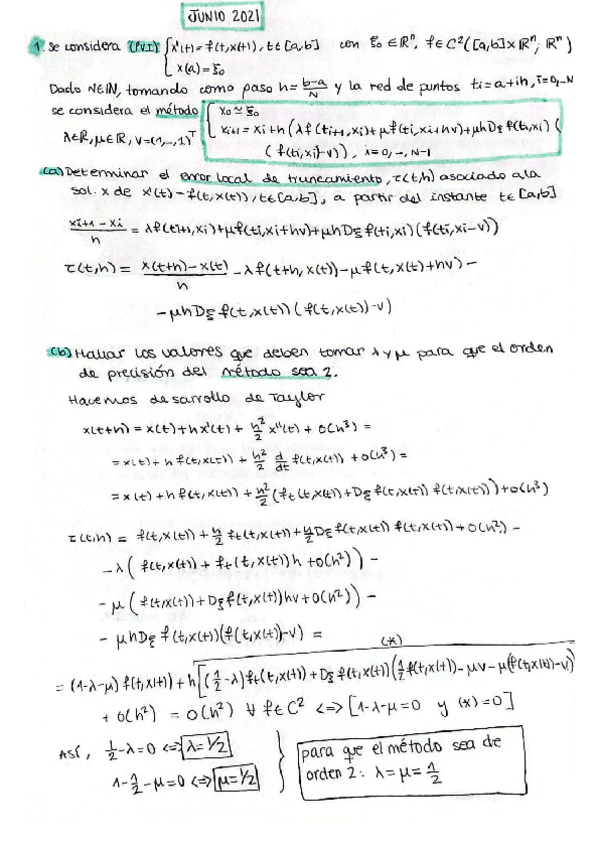 JUNIO 2021
1. Se considera (P.V.I) { x'(t) = f(t,x(t)), t∈[a,b] con ξ₀ ∈ ℝⁿ, f∈C²([a,b]×ℝⁿ; ℝⁿ)
x(a) = ξ₀
Dado N∈IN, tomando como paso h = (b-a)/N y la red de puntos ti = a+ih, i=0,..,N
se considera el método { x₀ ≃ ξ₀
xi+1 = xi + h (λf(ti+1,xi) + μf(ti,xi+hv) + μhDξ f(ti,xi) (
λ∈ℝ, μ∈ℝ, v=(1,..,1)ᵀ
(f(ti,xi)-v)), i=0,..,N-1
(a) Determinar el error local de truncamiento, τ(t,h) asociado a la
sol. x de x'(t) = f(t,x(t)), t∈[a,b], a partir del instante t∈[a,b]
(xi+1 - xi)/h = λf(ti+1,xi) + μf(ti,xi+hv) + μhDξ f(ti,xi) (f(ti,xi-v))
τ(t,h) = (x(t+h) - x(t))/h - λf(t+h, x(t)) - μf(t,x(t)+hv) -
- μhDξ f(t,x(t)) (f(t,x(t))-v)
(b) Hallar los valores que deben tomar λ y μ para que el orden
de precisión del método sea 2.
Hacemos desarrollo de Taylor
x(t+h) = x(t) + hx'(t) + h²/2 x''(t) + O(h³) =
= x(t) + h f(t,x(t)) + h²/2 d/dt f(t,x(t)) + O(h³) =
= x(t) + h f(t,x(t)) + h²/2 (ft(t,x(t)) + Dξ f(t,x(t)) f(t,x(t))) + O(h³)
τ(t,h) = f(t,x(t)) + h/2 ft(t,x(t)) + h/2 Dξ f(t,x(t)) f(t,x(t)) + O(h²) -
- λ( f(t,x(t)) + ft(t,x(t))h + O(h²)) -
- μ( f(t,x(t)) + Dξ f(t,x(t))hv + O(h²)) -
- μhDξ f(t,x(t))(f(t,x(t))-v) =
(*)
= (1-λ-μ) f(t,x(t)) + h[(1/2-λ) ft(t,x(t)) + Dξ f(t,x(t)) (1/2 f(t,x(t)) - μv - μ(f(t,x(t))-v)
+ O(h²) = O(h²) ∀ f∈C² <=> [1-λ-μ=0 y (*)=0]
ASÍ, 1/2-λ=0 <=> λ=1/2
1-1/2-μ=0 <=> μ=1/2
para que el método sea de
orden 2: λ=μ=1/2